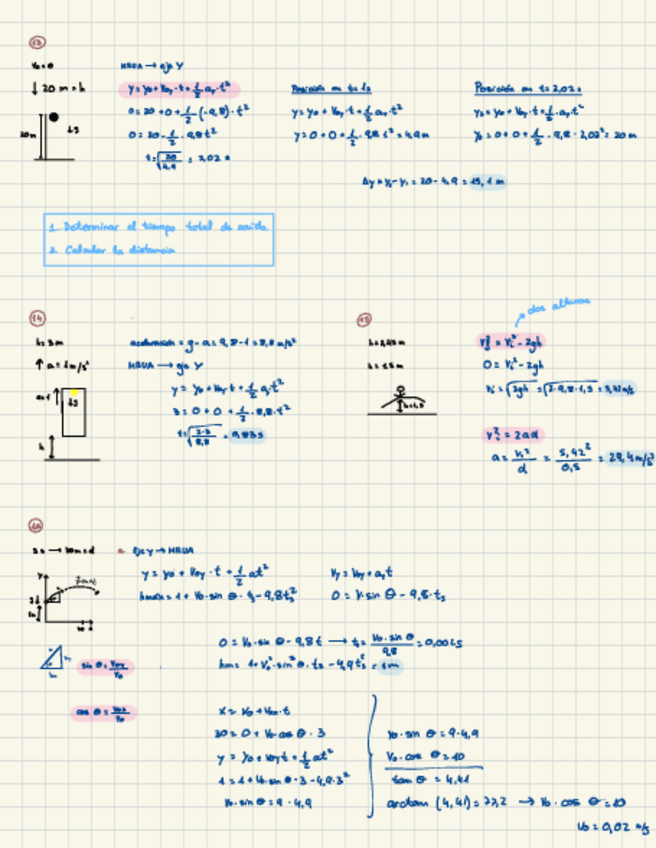 13
v₀=0
↓ 20 m = h
20m
MRUA → eje Y
y = y₀ + v₀y · t + 1/2 ay · t²
0 = 20 + 0 + 1/2 (-9,8) · t²
0 = 20 - 1/2 · 9,8 t²
t = √(20/4,9) = 2,02 s
Posición en t = 1s
y = y₀ + v₀y · t + 1/2 ay · t²
y = 0 + 0 + 1/2 · 9,8 t² = 4,9 m
Posición en t = 2,02 s
y₂ = y₀ + v₀y · t + 1/2 · ay · t²
y₂ = 0 + 0 + 1/2 · 9,8 · 2,02² = 20 m
Δy = y₂ - y₁ = 20 - 4,9 = 15,1 m
1. Determinar el tiempo total de caída
2. Calcular la distancia
14
h = 3m
↑ a = 1 m/s²
h
aceleración = g - a = 9,8 - 1 = 8,8 m/s²
MRUA → eje Y
y = y₀ + v₀y t + 1/2 ay t²
3 = 0 + 0 + 1/2 · 8,8 · t²
t = √(2·3/8,8) = 0,83 s
15
h = 1,5 m
dos alturas
vf² = vi² - 2gh
0 = vi² - 2gh
vi = √2gh = √2·9,8·1,5 =
vi² = 2ad
a = vi²/d = 5,42²/0,5 = 29,4 m/s²
3s → 30m = d
a. Eje y → MRUA
y = y₀ + v₀y · t + 1/2 at²
hmax = 1 + v₀ · sin θ · ts - 4,9 ts²
vy = v₀y + ay t
0 = v₀ sin θ - 9,8 ts
0 = v₀ · sin θ - 9,8 t → ts = v₀ · sin θ / 9,8 = 0,002s
hm = 1 + v₀² · sin² θ · ts - 4,9 ts² = 1m
sin θ = v₀y/v₀
cos θ = v₀x/v₀
x = x₀ + v₀x · t
30 = 0 + v₀ cos θ · 3
y = y₀ + v₀y t + 1/2 at²
1 = 1 + v₀ · sin θ · 3 - 4,9 · 3²
v₀ · sin θ = 9 · 4,9
v₀ · sin θ = 9 · 4,9
v₀ · cos θ = 10
tan θ = 4,41
arctan (4,41) = 77,2 → v₀ · cos θ = 10
v₀ = 0,02 m/s